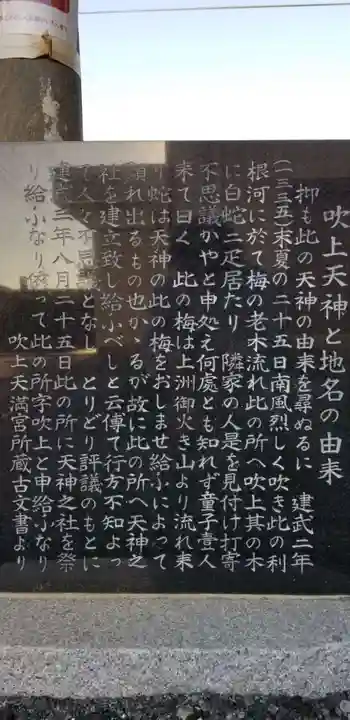 吹上天神と地名の由来
抑も此の天神の由来を尋ぬるに 建武二年
(一三三五)末夏の二十五日南風烈しく吹き此の利
根河に於て梅の老木流れ此の所へ吹上其の木
に白蛇二疋居たり 隣家の人是を見付け打寄
不思議かやと申処え何處とも知れず童子壹人
来て曰く 此の梅は上洲御火き山より流れ来
り蛇は天神の此の梅をおしませ給ふによって
顕れ出るもの也か、るが故に此の所へ天神之
社を建立致し給ふべしと云傳て行方不知よっ
て人々不同議となし とりどり評議のもとに
建武三年八月二十五日此の所に天神之社を祭
り給ふなり依って此の所字吹上と申給ふなり
吹上天満宮所蔵古文書より